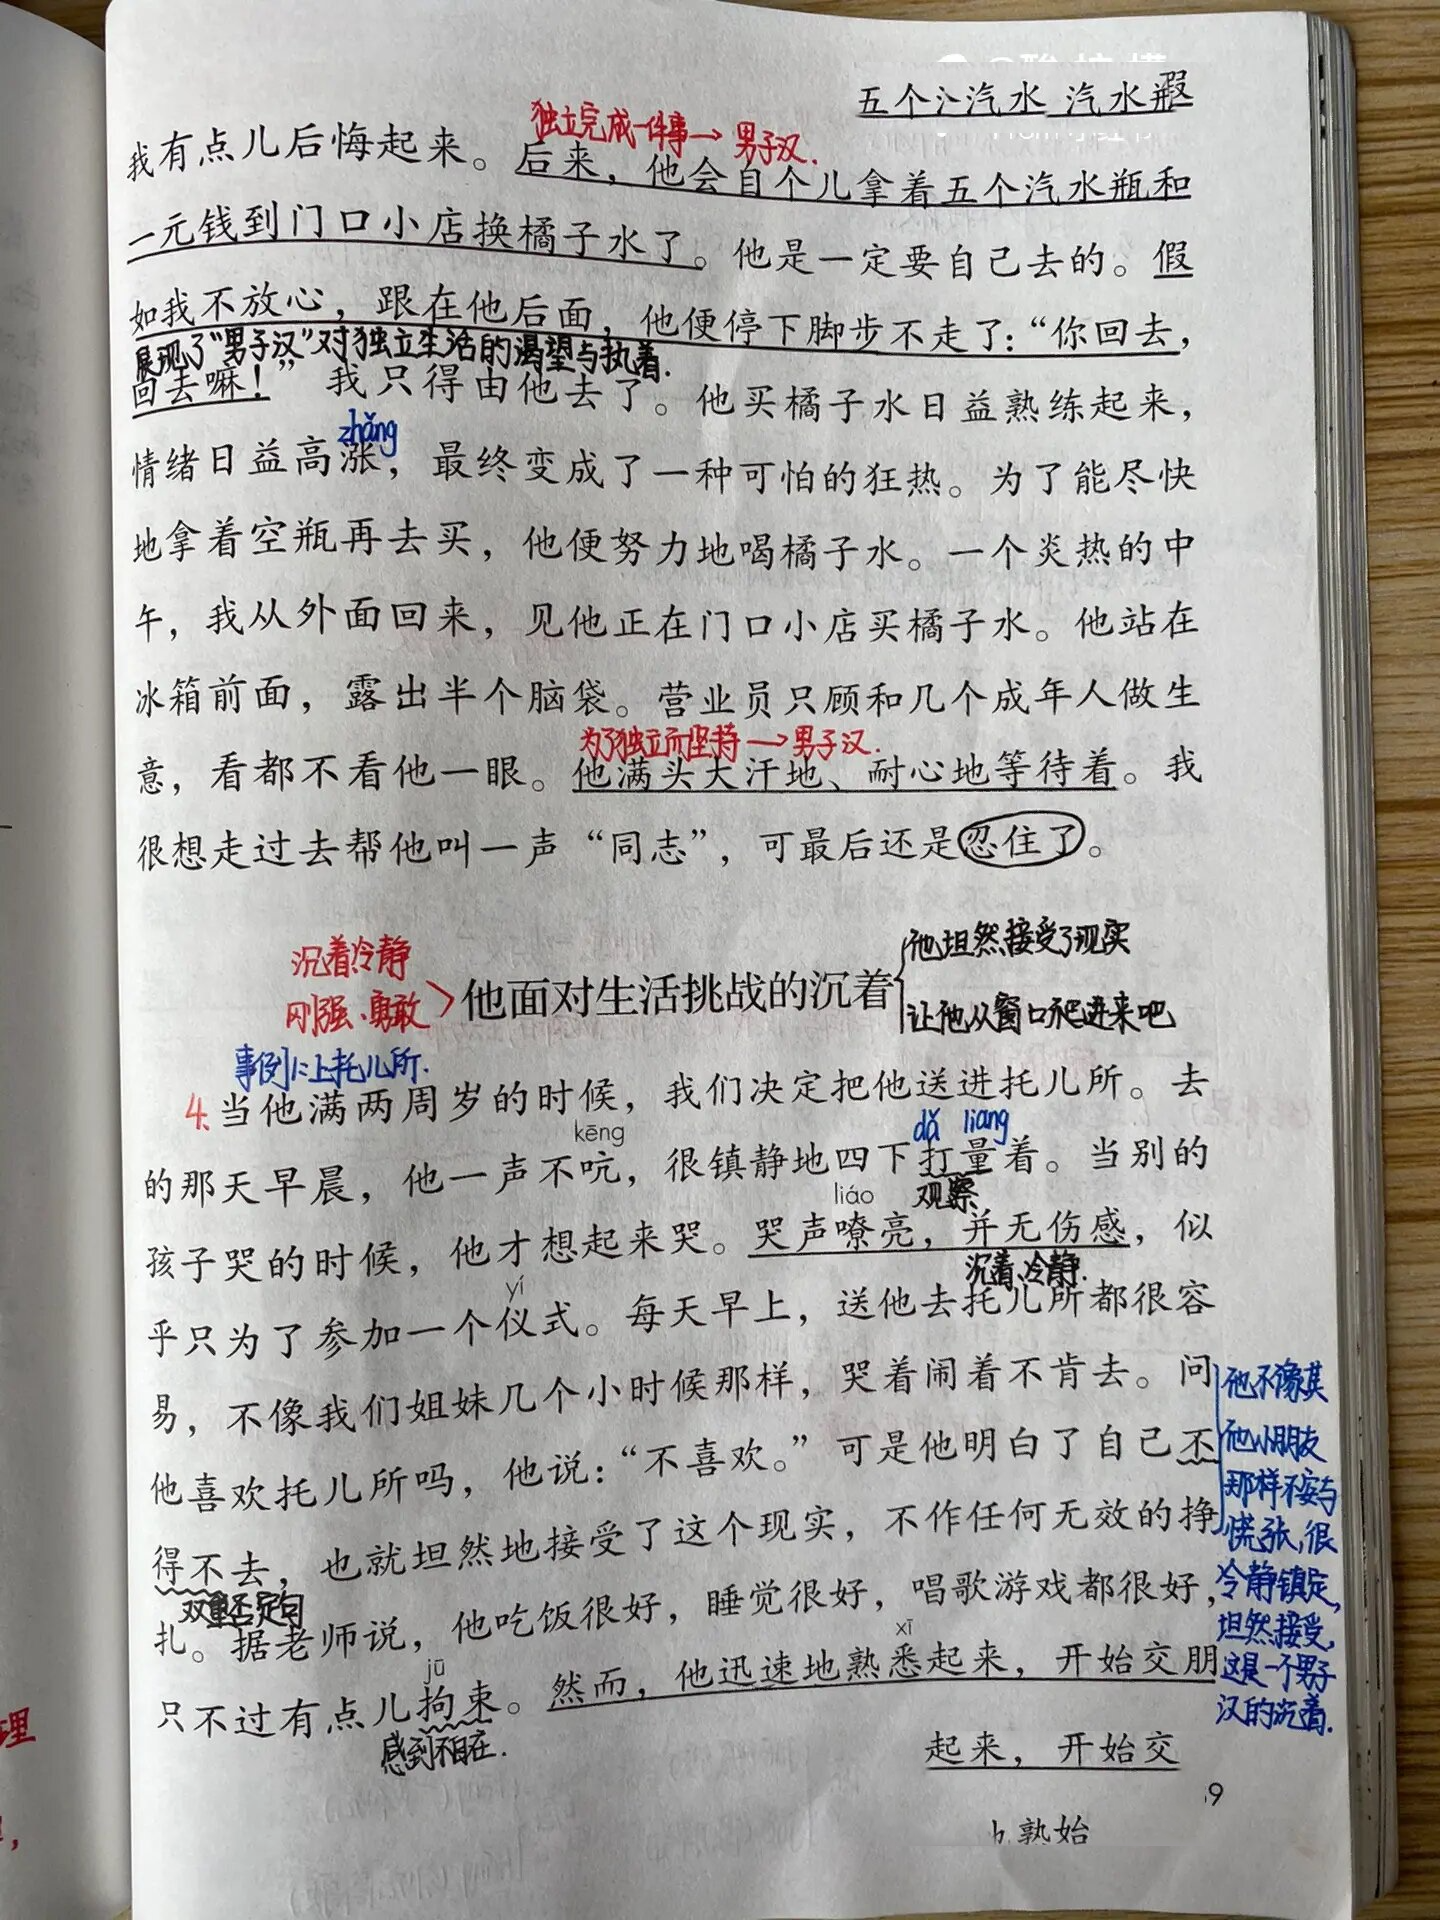 五个 汽水 汽水瓶
独立完成一件事→男子汉.
我有点儿后悔起来。后来，他会自个儿拿着五个汽水瓶和
一元钱到门口小店换橘子水了。他是一定要自己去的。假
如我不放心，跟在他后面，他便停下脚步不走了：“你回去，
展现了“男子汉”对独立生活的渴望与执着.
回去嘛！”我只得由他去了。他买橘子水日益熟练起来，
zhǎng
情绪日益高涨，最终变成了一种可怕的狂热。为了能尽快
地拿着空瓶再去买，他便努力地喝橘子水。一个炎热的中
午，我从外面回来，见他正在门口小店买橘子水。他站在
冰箱前面，露出半个脑袋。营业员只顾和几个成年人做生
为了独立而坚持→男子汉.
意，看都不看他一眼。他满头大汗地、耐心地等待着。我
很想走过去帮他叫一声“同志”，可最后还是忍住了。
沉着冷静
刚强、勇敢
他面对生活挑战的沉着
他坦然接受了现实
让他从窗口爬进来吧
事例:上托儿所.
4.当他满两周岁的时候，我们决定把他送进托儿所。去
kēng
dǎ liang
的那天早晨，他一声不吭，很镇静地四下打量着。当别的
liáo
观察
孩子哭的时候，他才想起来哭。哭声嘹亮，并无伤感，似
yí
沉着、冷静.
乎只为了参加一个仪式。每天早上，送他去托儿所都很容
易，不像我们姐妹几个小时候那样，哭着闹着不肯去。问
他喜欢托儿所吗，他说：“不喜欢。”可是他明白了自己不
得不去，也就坦然地接受了这个现实，不作任何无效的挣
双重否定句
扎。据老师说，他吃饭很好，睡觉很好，唱歌游戏都很好，
jū
xī
只不过有点儿拘束。然而，他迅速地熟悉起来，开始交朋
感到不自在.
他不像其
他小朋友
那样不安与
慌张，很
冷静镇定，
坦然接受，
这是一个男子
汉的沉着.
起来，开始交
9
熟始
理